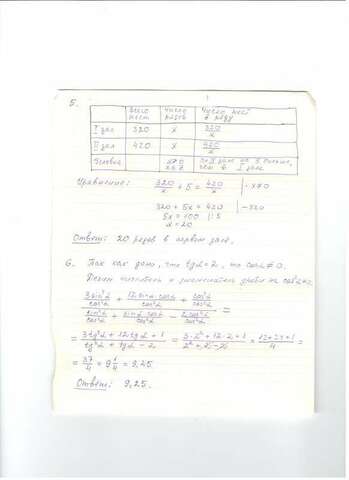 5.
Всего мест | Число рядов | Число мест в ряду
I зал | 320 | x | 320/x
II зал | 420 | x | 420/x
Условия | x≠0 | II зале на 5 больше, чем в I зале
Уравнение: 320/x + 5 = 420/x | · x≠0
320 + 5x = 420 | -320
5x = 100 | :5
x = 20
Ответ: 20 рядов в первом зале.
6. Так как дано, что tgα=2, то cosα≠0.
Делим числитель и знаменатель дроби на cos²α
= (3tg²α + 12tgα + 1)/(tg²α + tgα - 2) = (3·2² + 12·2 + 1)/(2² + 2 - 2) = (12+24+1)/4 =
= 37/4 = 9 1/4 = 9,25
Ответ: 9,25.